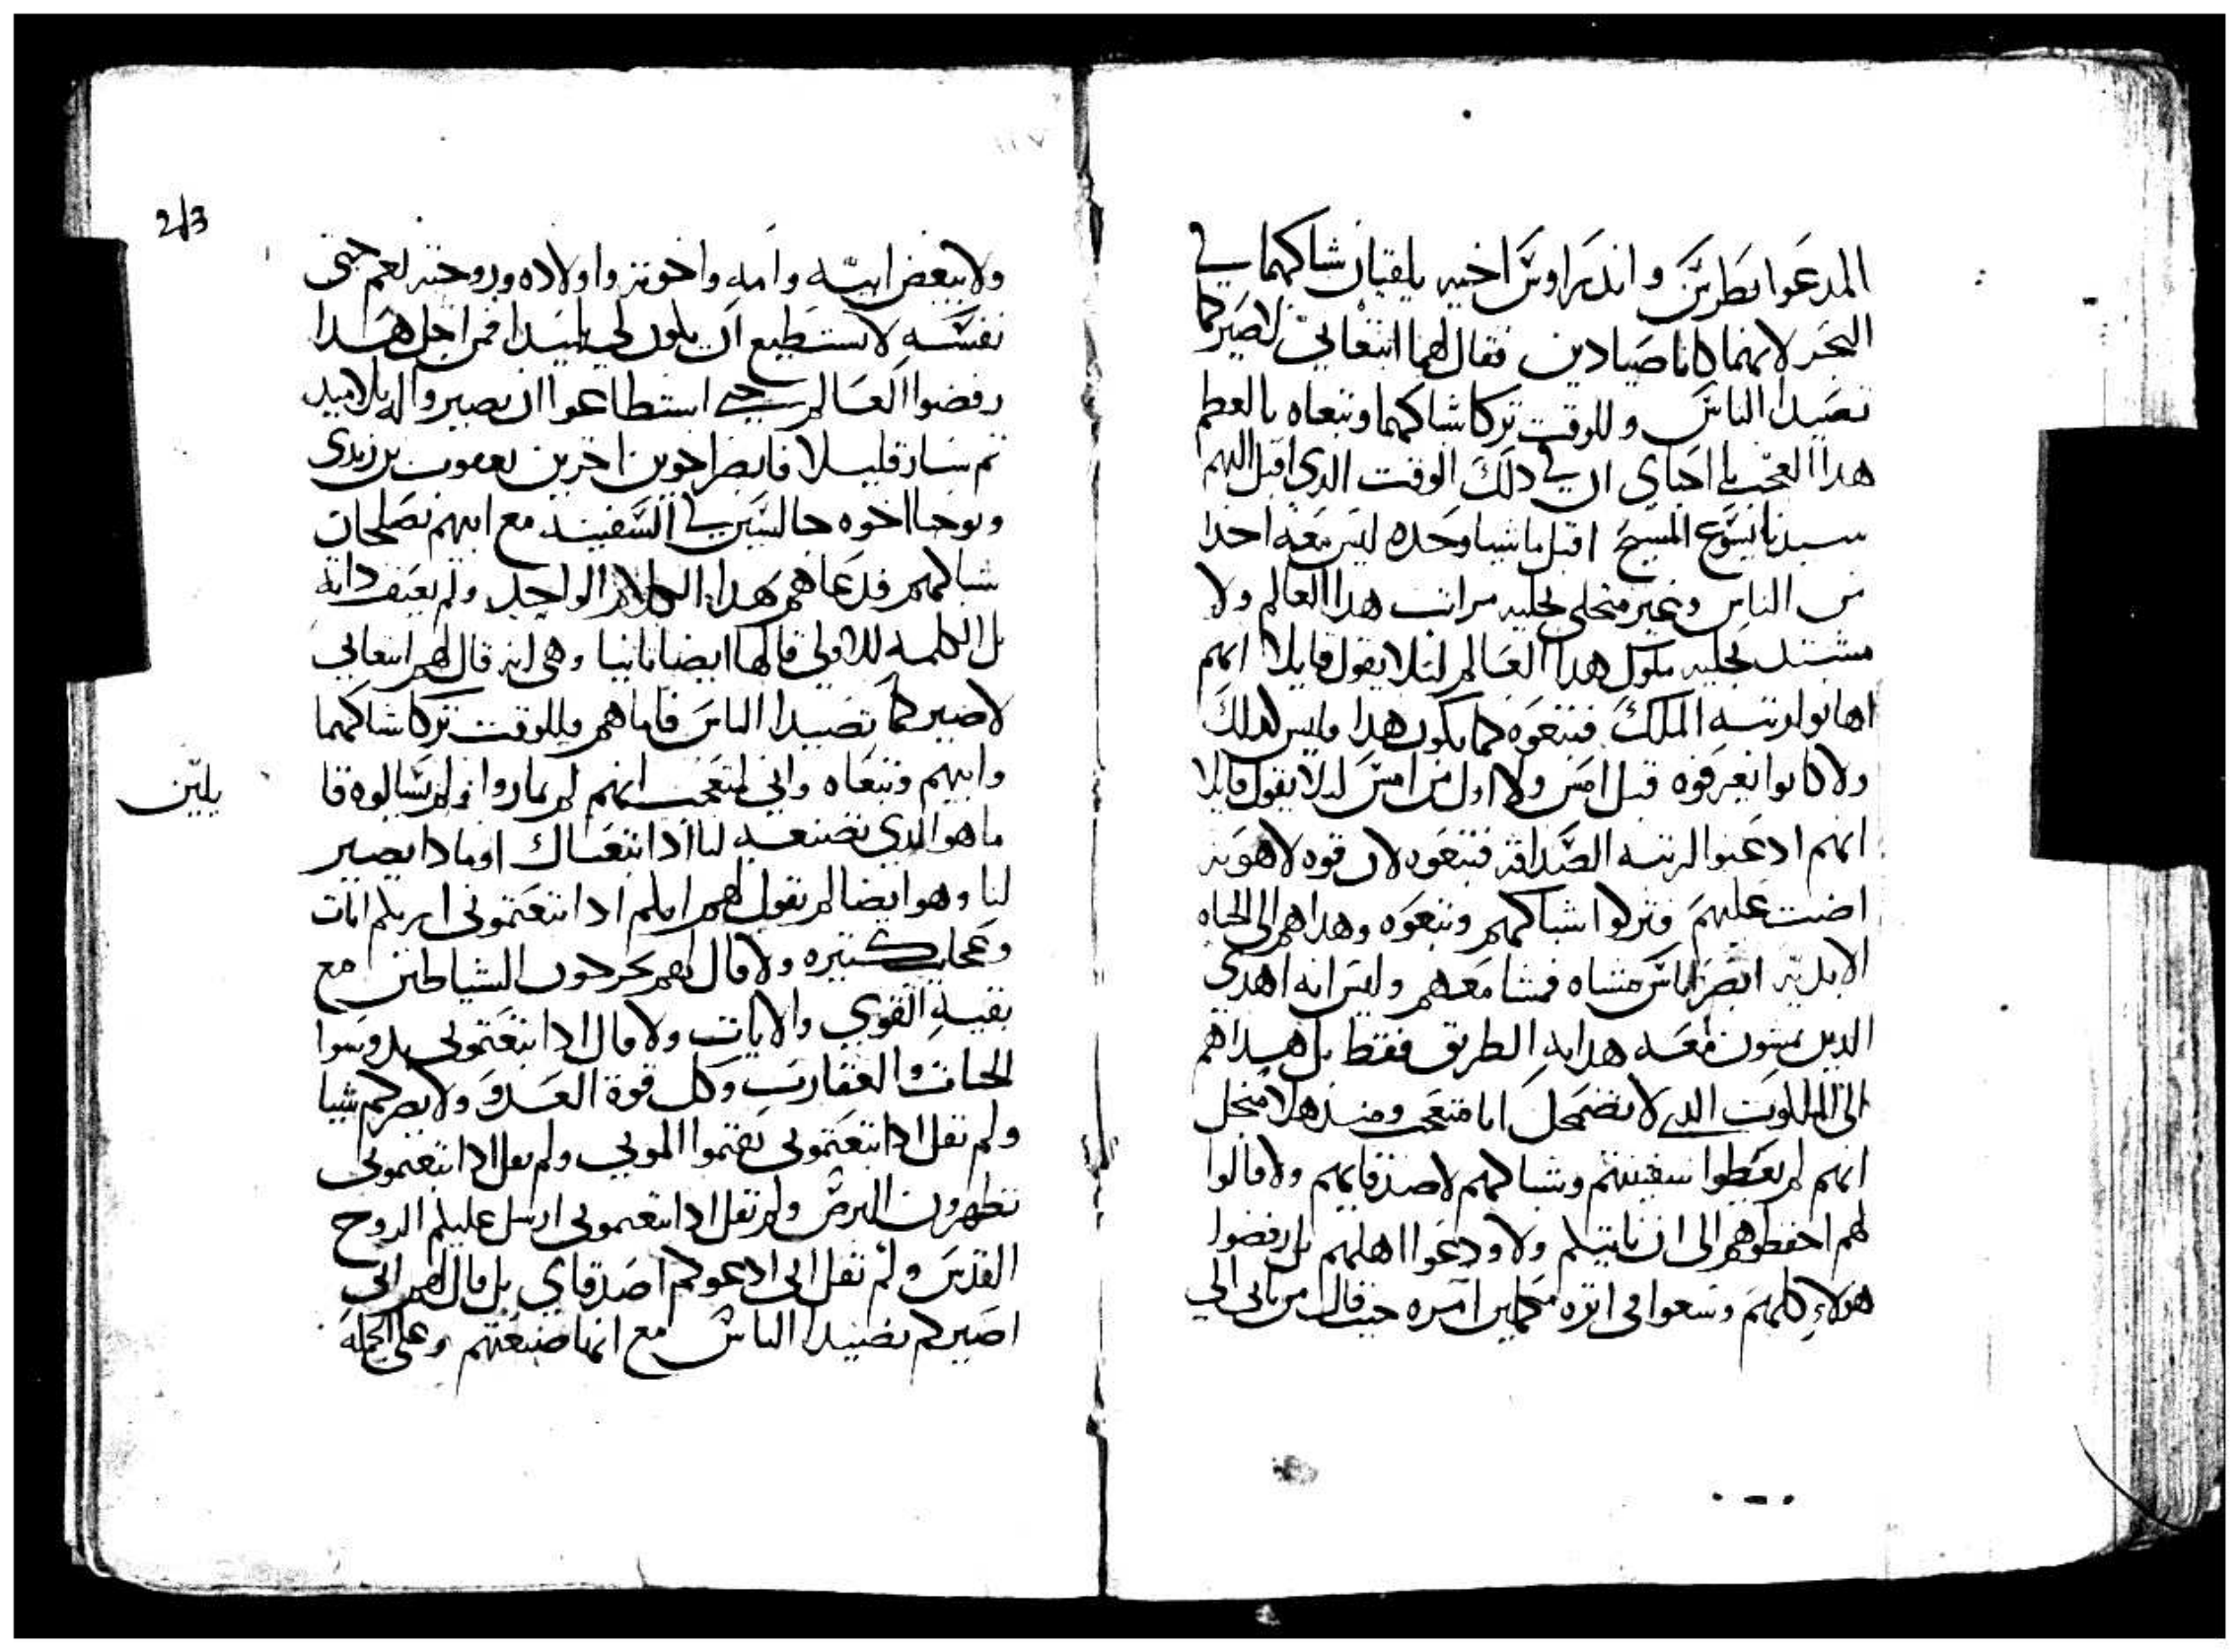 المدعوا بطرس واندراوس اخيه يلقيان شباكهما في
البحر لانهما كانا صيادين فقال لهما اتبعاني لاصيركما
تصيدا الناس وللوقت تركا شباكهما وتبعاه يا لعظم
هدا العجب يا احباي ان في دلك الوقت الدي اقبل اليهم
سيدنا يسوع المسيح اقبل ماشيا وحده ليس معه احدا
من الناس وغير متحلي بحليه مراتب هدا العالم ولا
مشتمل بحليه ملوك هدا العالم ليلا يقول قايلا انهم
اهابوا رتبه الملك فتبعوه كما يكون هدا وليس كدلك
ولا كانوا يعرفوه قبل امس ولا اول من امس ليلا يقول قايلا
انهم ادعنوا لرتبه الصداقه فتبعوه لان قوه لاهوته
اضت عليهم فتركوا شباكهم وتبعوه وهداهم الى الحياه
الابديه ابصر اناس مشاه فمشا معهم وليس انه اهدي
الدين يمشون معه هدايه الطريق فقط بل هداهم
الى الملكوت الدي لا يضمحل انا متعجب ومندهل من اجل
انهم لم يعطوا سفينتهم وشباكهم لاصدقايهم ولا قالوا
لهم احفظوهم الى ان ناتيكم ولا ودعوا اهلهم بل رفضوا
هولاء كلهم وسعوا في اتره مكملين امره حيت قال من ياتي الي
213
ولا يبغض ابيه وامه واخوته واولاده وزوجته نعم حتى
نفسه لا يستطيع ان يكون لي تلميدا فمن اجل هدا
رفضوا العالم حتى استطاعوا ان يصيروا له تلاميد
تم سار قليلا فابصر اخوين اخرين يعقوب بن زبدي
ويوحنا اخوه جالسين في السفينه مع ابيهم يصلحان
شباكهم فدعاهم بهدا الكلام الواحد ولم يعنف داته
بل الكلمه الاولى قالها ايضا تانيا وهي انه قال لهم اتبعاني
لاصيركما تصيدا الناس فاما هم وللوقت تركا شباكهما
وابيهم وتبعاه واني لمتعجب انهم لم يماروا ولم يسالوه قا
يلين
ما هو الدي تصنعه لنا ادا تبعناك او مادا يصير
لنا وهو ايضا لم يقول لهم انكم ادا تبعتموني اريكم ايات
وعجايب كتيره ولا قال لهم تخرجون الشياطين مع
بقيه القوي والايات ولا قال ادا تبعتموني تدوسوا
الحيات والعقارب وكل قوة العدو ولا يضركم شيا
ولم يقل ادا تبعتموني تقيموا الموتى ولم يقل ادا تبعتموني
تطهرون البرص ولم يقل ادا تبعتموني ارسل عليكم الروح
القدس ولم يقل اني ادعوكم اصدقاي بل قال لهم اني
اصيركم تصيدا الناس مع انها صنعتهم وعلى الجمله